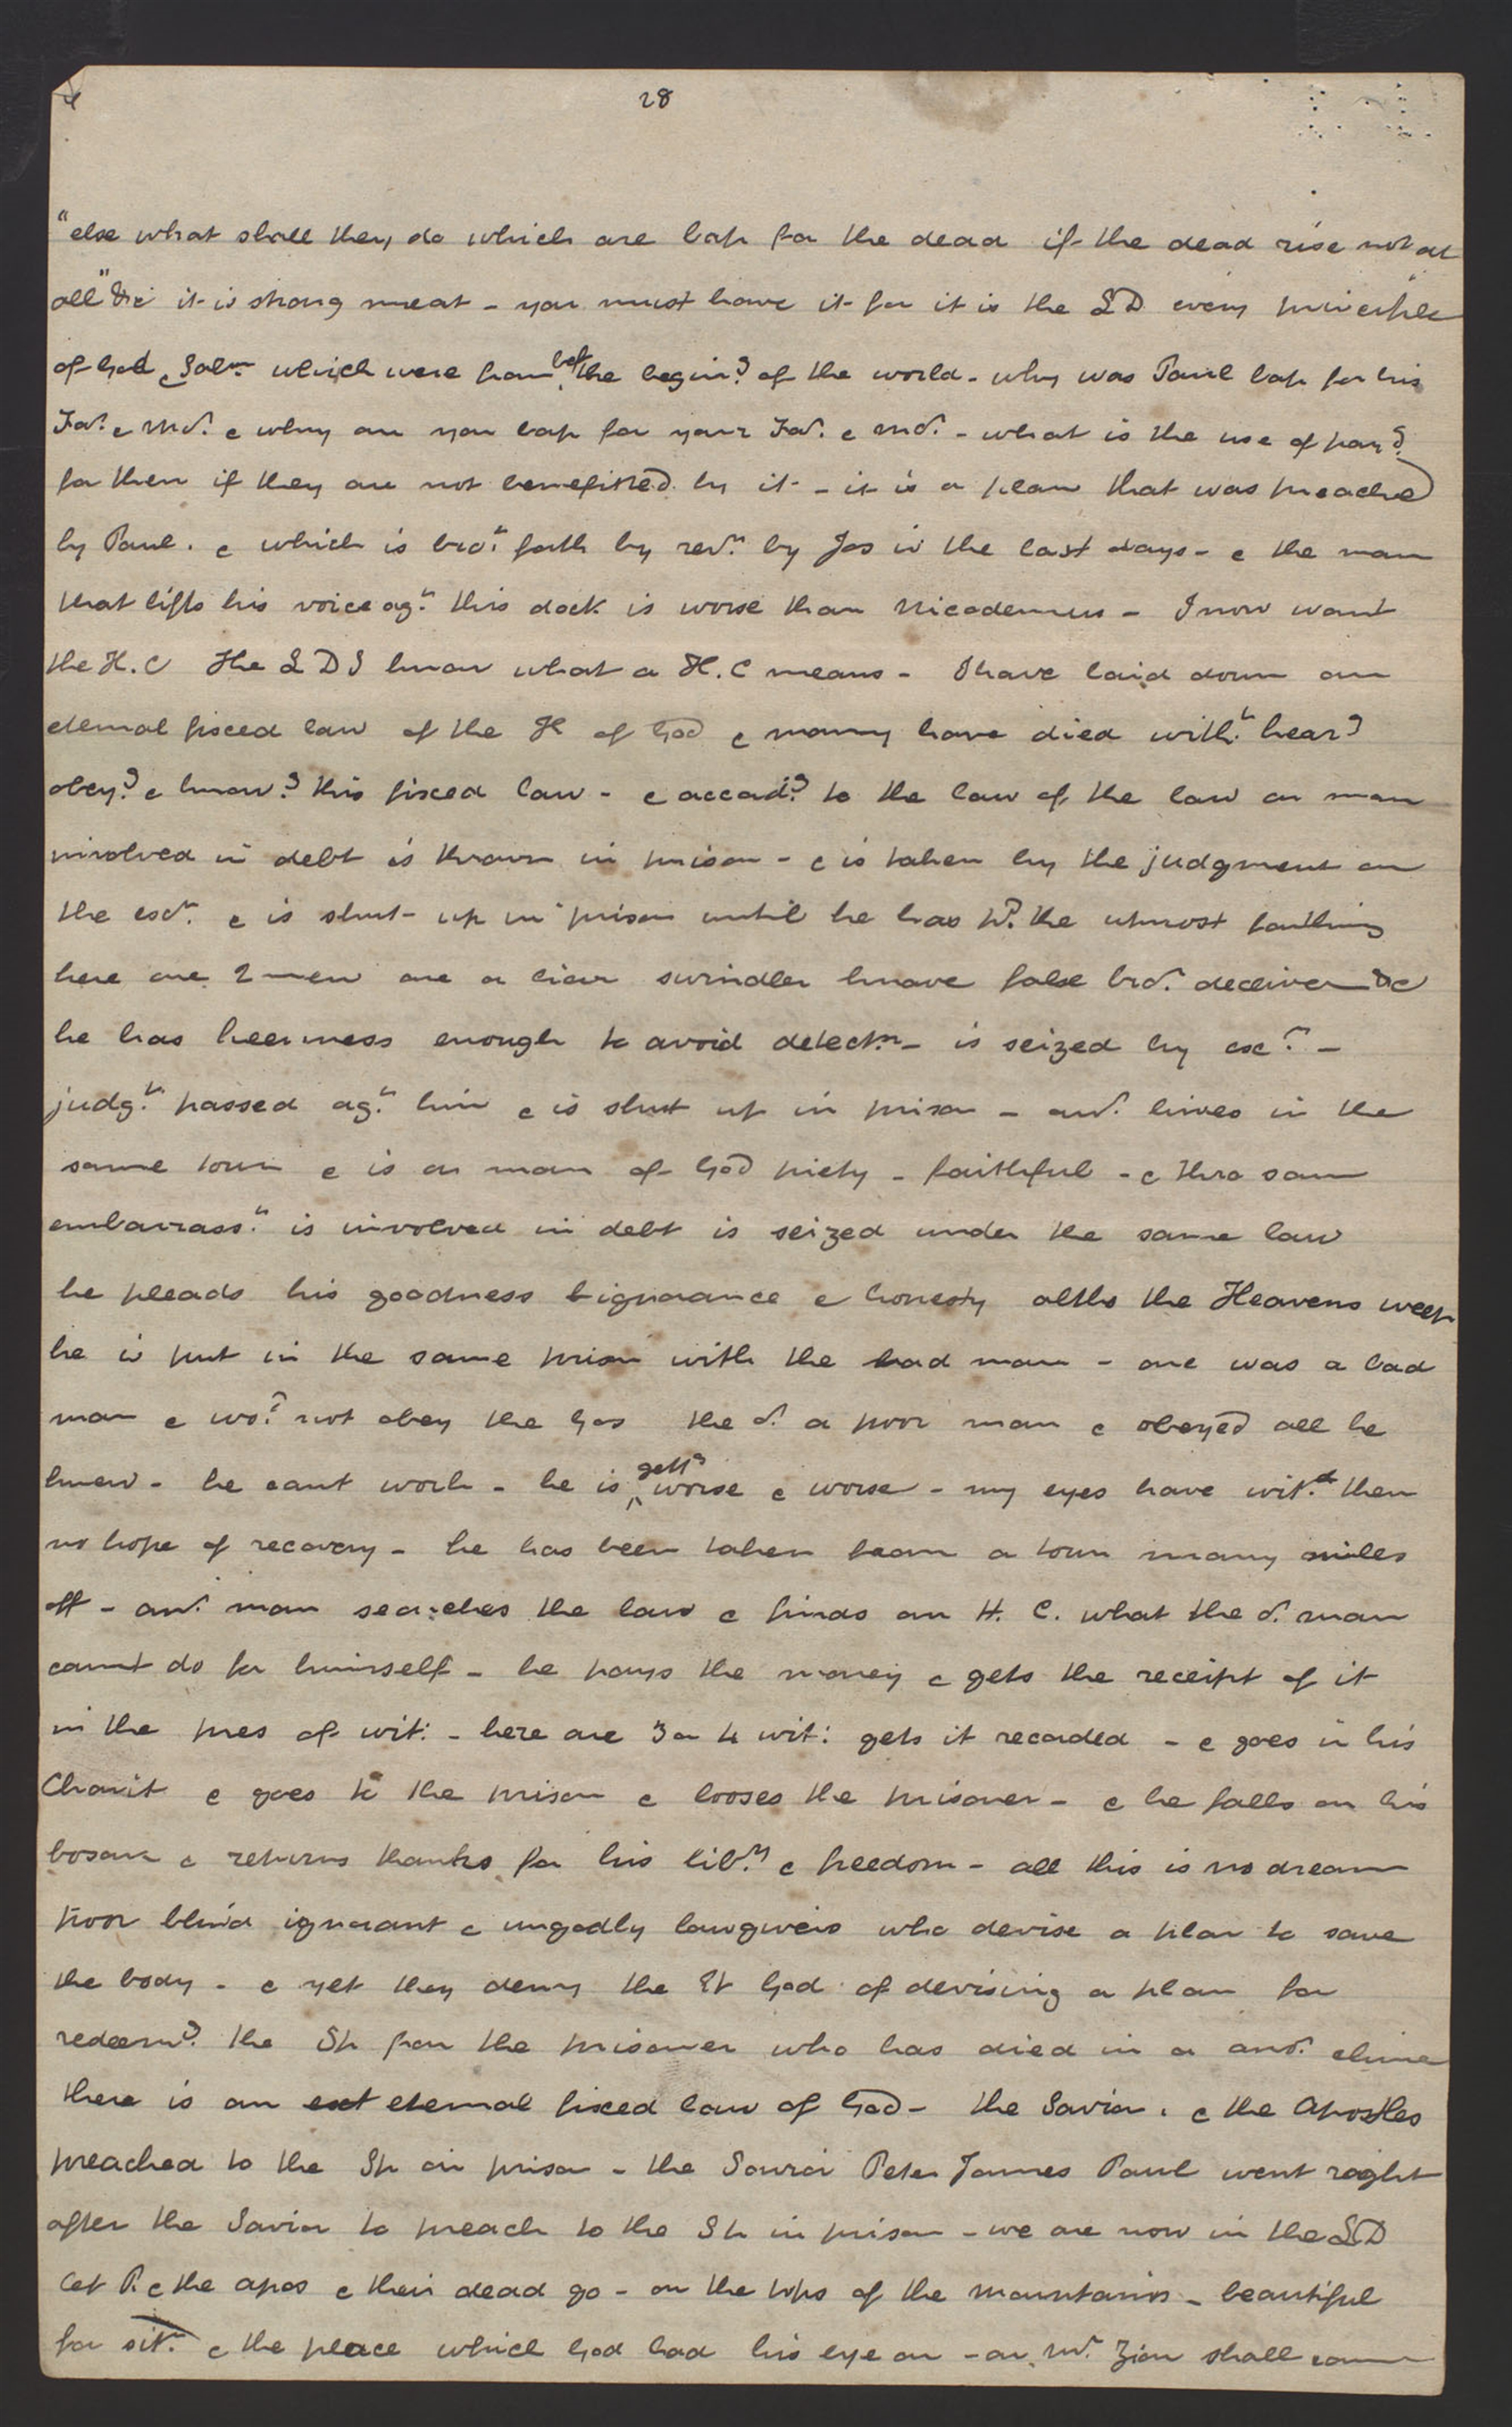 28
"else what shall they do which are bap for the dead if the dead rise not at
all" &c it is strong meat - you must have it for it is the LD every principle
of God & Salvn. which were from bef the beging. of the world - why was Paul bap for his
Far. & Mor. & why are you bap for your Far. & mor. - what is the use of payg.
for them if they are not benefitted by it - it is a plan that was preached
by Paul. & which is brot. forth by revn. by Jos in the last days - & the man
that lifts his voice agt. this doct is worse than Nicodemus - I now want
the H.C The LDS know what a H.C means - I have laid down an
eternal fixed law of the K of God & many have died witht. hearg
obeyg. & knowg. this fixed law - & accordg. to the law of the law a man
involved in debt is thrown in prison - & is taken by the judgment on
the exon. & is shut up in prison until he has pd. the utmost farthing
here are 2 men one a liar swindler knave false bror. deceiver &c
he has keenness enough to avoid detectn. - is seized by exon. -
judgt. passed agt. him & is shut up in prison - anr. lives in the
same town & is a man of God piety - faithful - & thro som
embarrasst. is involved in debt is seized under the same law
he pleads his goodness & ignorance & honesty altho the Heavens weep
he is put in the same prison with the bad man - one was a bad
man & wod. not obey the Gos the or. a poor man & obeyed all he
knew - he cant work - he is getg worse & worse - my eyes have witd. them
no hope of recovery - he has been taken from a town many miles
off - anr. man searches the law & finds an H. C. what the or. man
cannot do for himself - he pays the money & gets the receipt of it
in the pres of wit: - here are 3 or 4 wit: gets it recorded - & goes in his
Chariot & goes to the prison & looses the prisoner - & he falls on his
bosom & returns thanks for his liby. & freedom - all this is no dream
poor blind ignorant & ungodly lawgivers who devise a plan to save
the body - & yet they deny the Et God of devising a plan for
redeemg. the Sp from the prisoner who has died in a anr. clime
there is an ext eternal fixed law of God - the Savior. & the Apostles
preached to the Sp in prison - the Savior Peter James Paul went right
after the Savior to preach to the Sp in prison - we are now in the LD
let P. & the apos & their dead go - on the tops of the mountains - beautiful
for sitn. & the place which God had his eye on - on Mt. Zion shall come